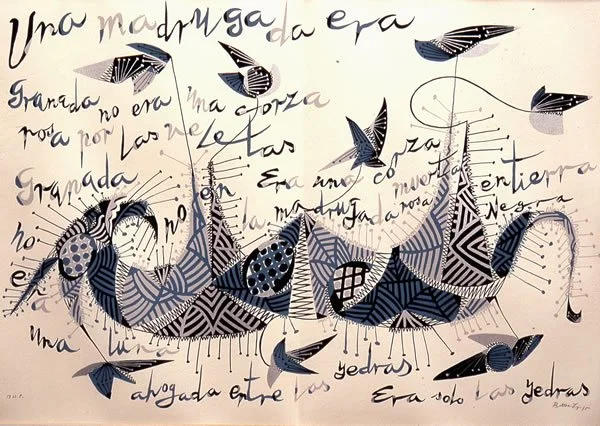 Una madrugada era
Granada no era una corza
rosa por las veletas
Granada no en Era una corza muerta en tierra
no la madrugada rosa Negra
era
una luna
ahogada entre las yedras
Era solo las yedras